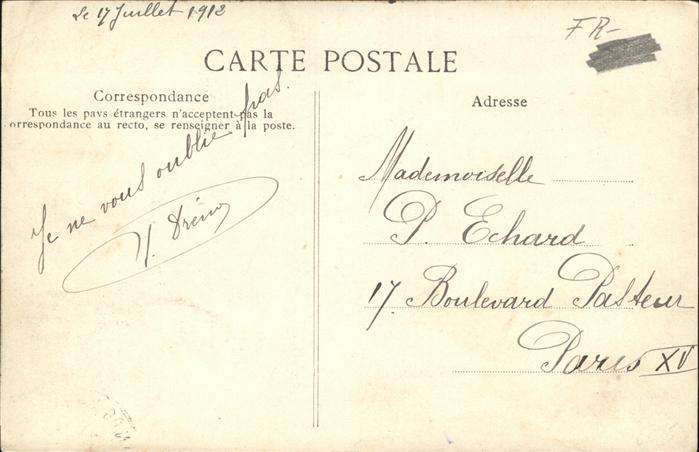 Le 17 Juillet 1912
FR-
CARTE POSTALE
Correspondance
Tous les pays étrangers n'acceptent pas la
correspondance au recto, se renseigner à la poste.
Je ne vous oublie pas.
Adresse
Mademoiselle
P. Echard
17. Boulevard Pasteur
Paris XV